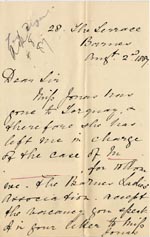 28. The Terrace
Barnes
Augst. 2nd 1887
Dear Sir
Miss Jonas has
gone to Torquay, &
therefore she has
left me in charge
of the case of
for
The Barnes Ladies
Association. accept
the vacancy you speak
of in your letter to Miss
Jonas